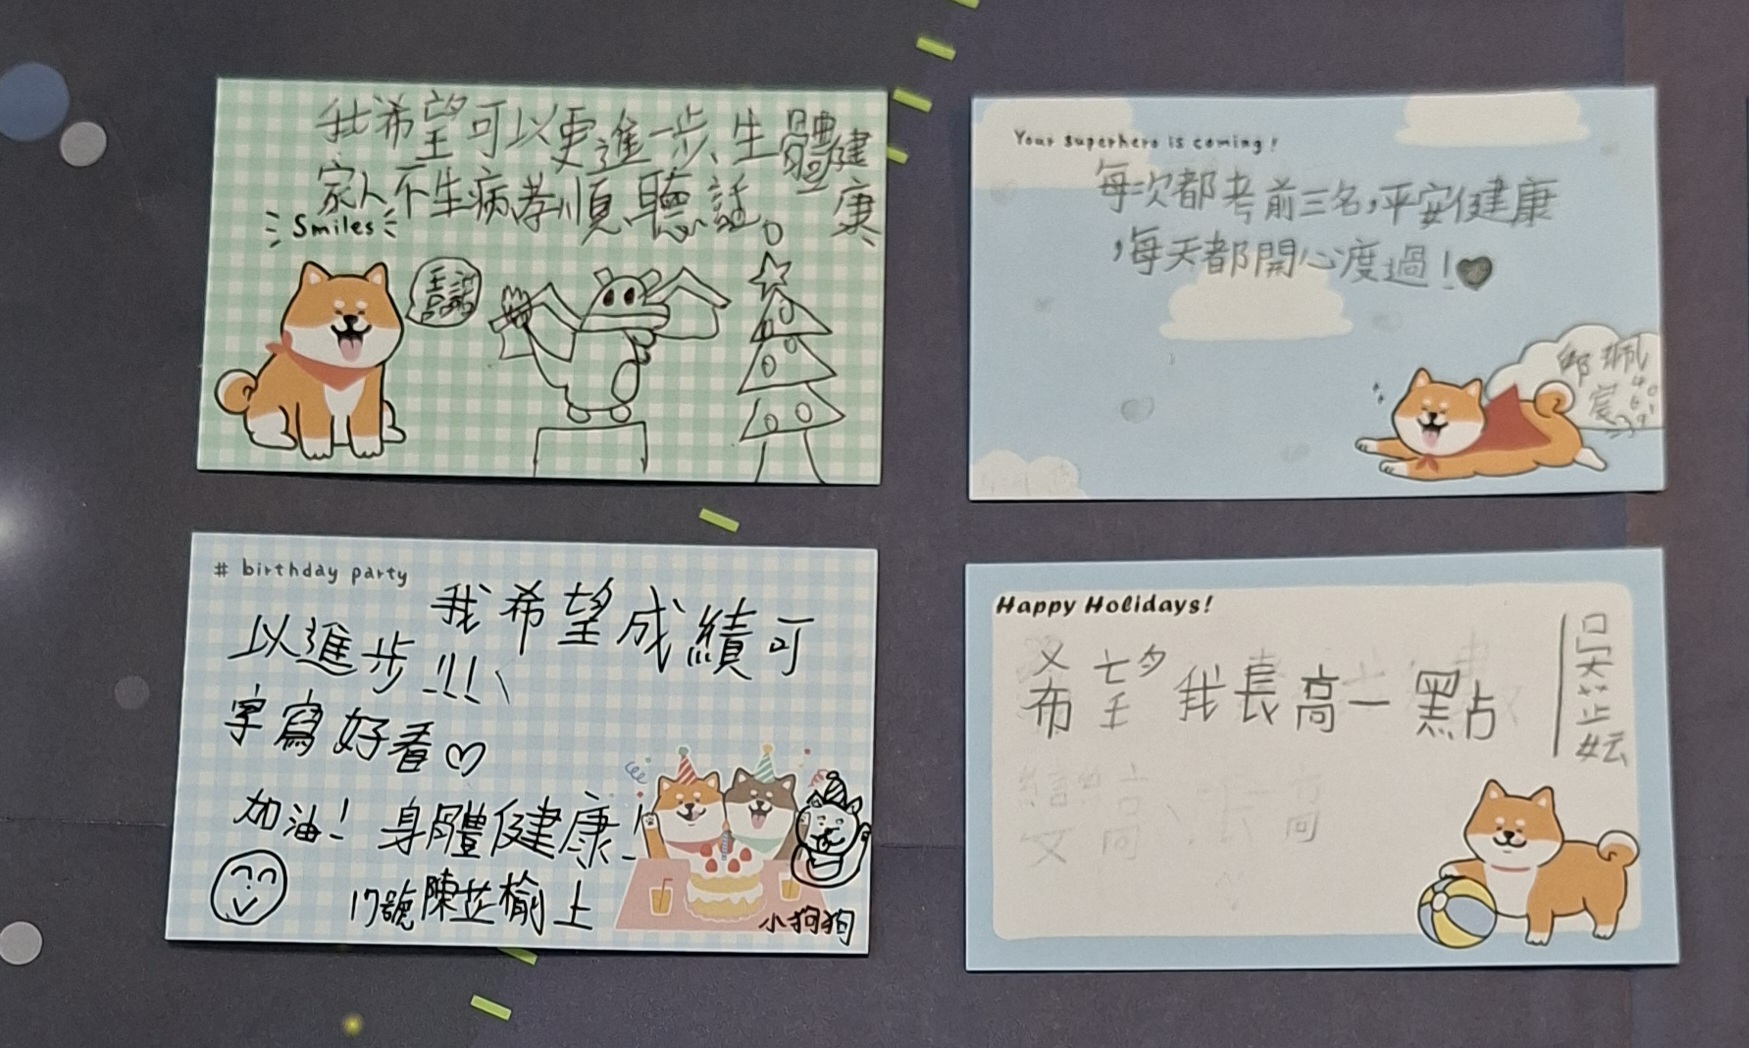 我希望可以更進一步、生體健康
家人不生病孝順聽話。
Smiles
Your superhero is coming!
每次都考前三名,平安健康
,每天都開心度過!
# birthday party
我希望成績可
以進步!!!
字寫好看
加油! 身體健康!
17號陳芷榆上
小狗狗
Happy Holidays!
希望我長高一點